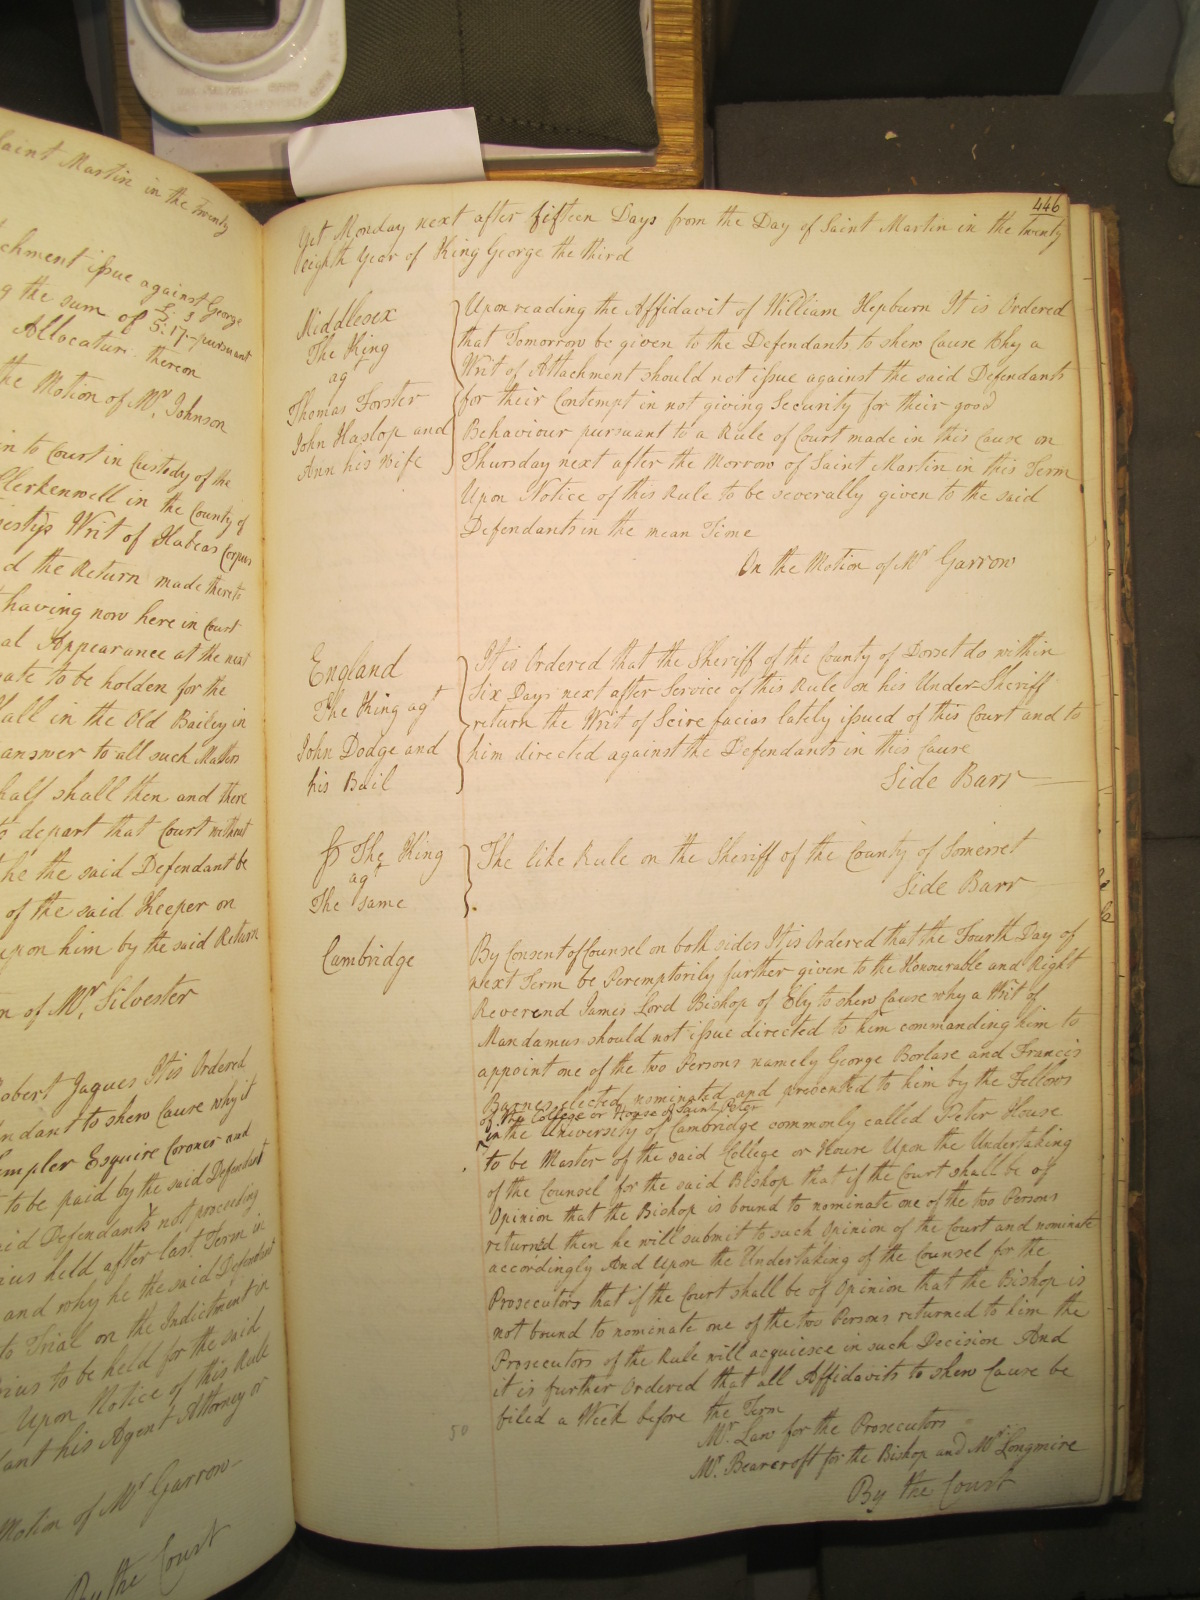 Saint Martin in the Twenty
chment issue against George
g the sum of £5:17:3 pursuant
Allocatur thereon
the Motion of Mr. Johnson
in to Court in Custody of the
Clerkenwell in the County of
jestys Writ of Habeas Corpus
d the Return made thereto
having now here in Court
al Appearance at the next
ate to be holden for the
Hall in the Old Bailey in
answer to all such Matters
half shall then and there
to depart that Court without
he the said Defendant be
of the said Keeper on
upon him by the said Return
n of Mr. Silvester
obert Jaques It is Ordered
ndant to shew Cause why it
empler Esquire Coroner and
to be paid by the said Defendant
aid Defendants not proceeding
ius held after last Term in
and why he the said Defendant
to Trial on the Indictment in
rius to be held for the said
Upon Notice of this Rule
ant his Agent Attorney or
Motion of Mr Garrow
By the Court
446
Yet Monday next after fifteen Days from the Day of Saint Martin in the twenty
eighth Year of King George the third
Middlesex
The King
agt
Thomas Forster
John Haslop and
Ann his Wife
Upon reading the Affidavit of William Hepburn It is Ordered
that Tomorrow be given to the Defendants to shew Cause Why a
Writ of Attachment should not issue against the said Defendants
for their Contempt in not giving Security for their good
Behaviour pursuant to a Rule of Court made in this Cause on
Thursday next after the Morrow of Saint Martin in this Term
Upon Notice of this Rule to be severally given to the said
Defendants in the mean Time
On the Motion of Mr Garrow
England
The King agt
John Dodge and
his Bail
It is Ordered that the Sheriff of the County of Dorset do within
Six Days next after Service of this Rule on his Under-Sheriff
return the Writ of Scire facias lately issued of this Court and to
him directed against the Defendants in this Cause
Side Barr
The King
agt
The same
The like Rule on the Sheriff of the County of Somerset
Side Barr
Cambridge
By Consent of Counsel on both sides It is Ordered that the Fourth Day of
next Term be Peremptorily further given to the Honourable and Right
Reverend James Lord Bishop of Ely to shew Cause why a Writ of
Mandamus should not issue directed to him commanding him to
appoint one of the two Persons namely George Borlase and Francis
Barnes elected nominated and presented to him by the Fellows
of the College or House of Saint Peter
in the University of Cambridge commonly called Peter House
to be Master of the said College or House Upon the Undertaking
of the Counsel for the said Bishop that if the Court shall be of
Opinion that the Bishop is bound to nominate one of the two Persons
returned then he will submit to such Opinion of the Court and nominate
accordingly And Upon the Undertaking of the Counsel for the
Prosecutors that if the Court shall be of Opinion that the Bishop is
not bound to nominate one of the two Persons returned to him the
Prosecutors of the Rule will acquiesce in such Decision And
it is further Ordered that all Affidavits to shew Cause be
filed a Week before the Term
Mr. Law for the Prosecutors
Mr. Bearcroft for the Bishop and Mr Longmire
By the Court
50